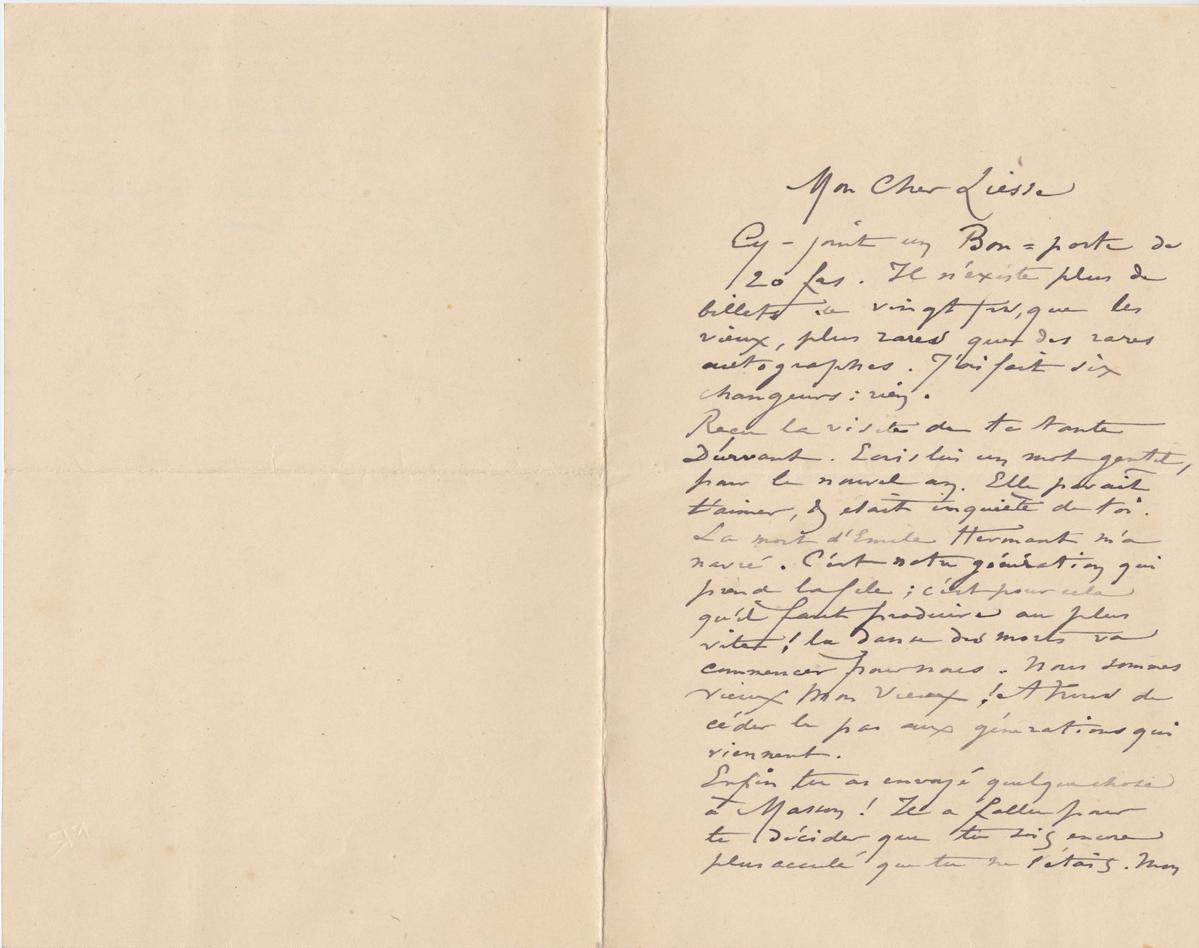 Mon Cher Liesse
Cy-joint un Bon=poste de
20 frs. Il n'existe plus de
billets de vingt frs, que les
vieux, plus rares que des rares
autographes. J'ai fait six
changeurs : rien.
Reçu la visite de ta tante
Durvant. Ecris lui un mot gentil,
pour le nouvel an. Elle parait
t'aimer, & etait inquiète de toi.
La mort d'Emile Hermant m'a
navré. C'est notre génération qui
prend la file ; c'est pour cela
qu'il faut produire au plus
vite ! la danse des morts va
commencer pour nous. Nous sommes
vieux mon vieux ! A nous de
céder le pas aux générations qui
viennent.
Enfin tu as envoyé quelque chose
à Masson ! Il a fallu pour
te décider que tu sois encore
plus acculé que tu ne l'étais. Mon